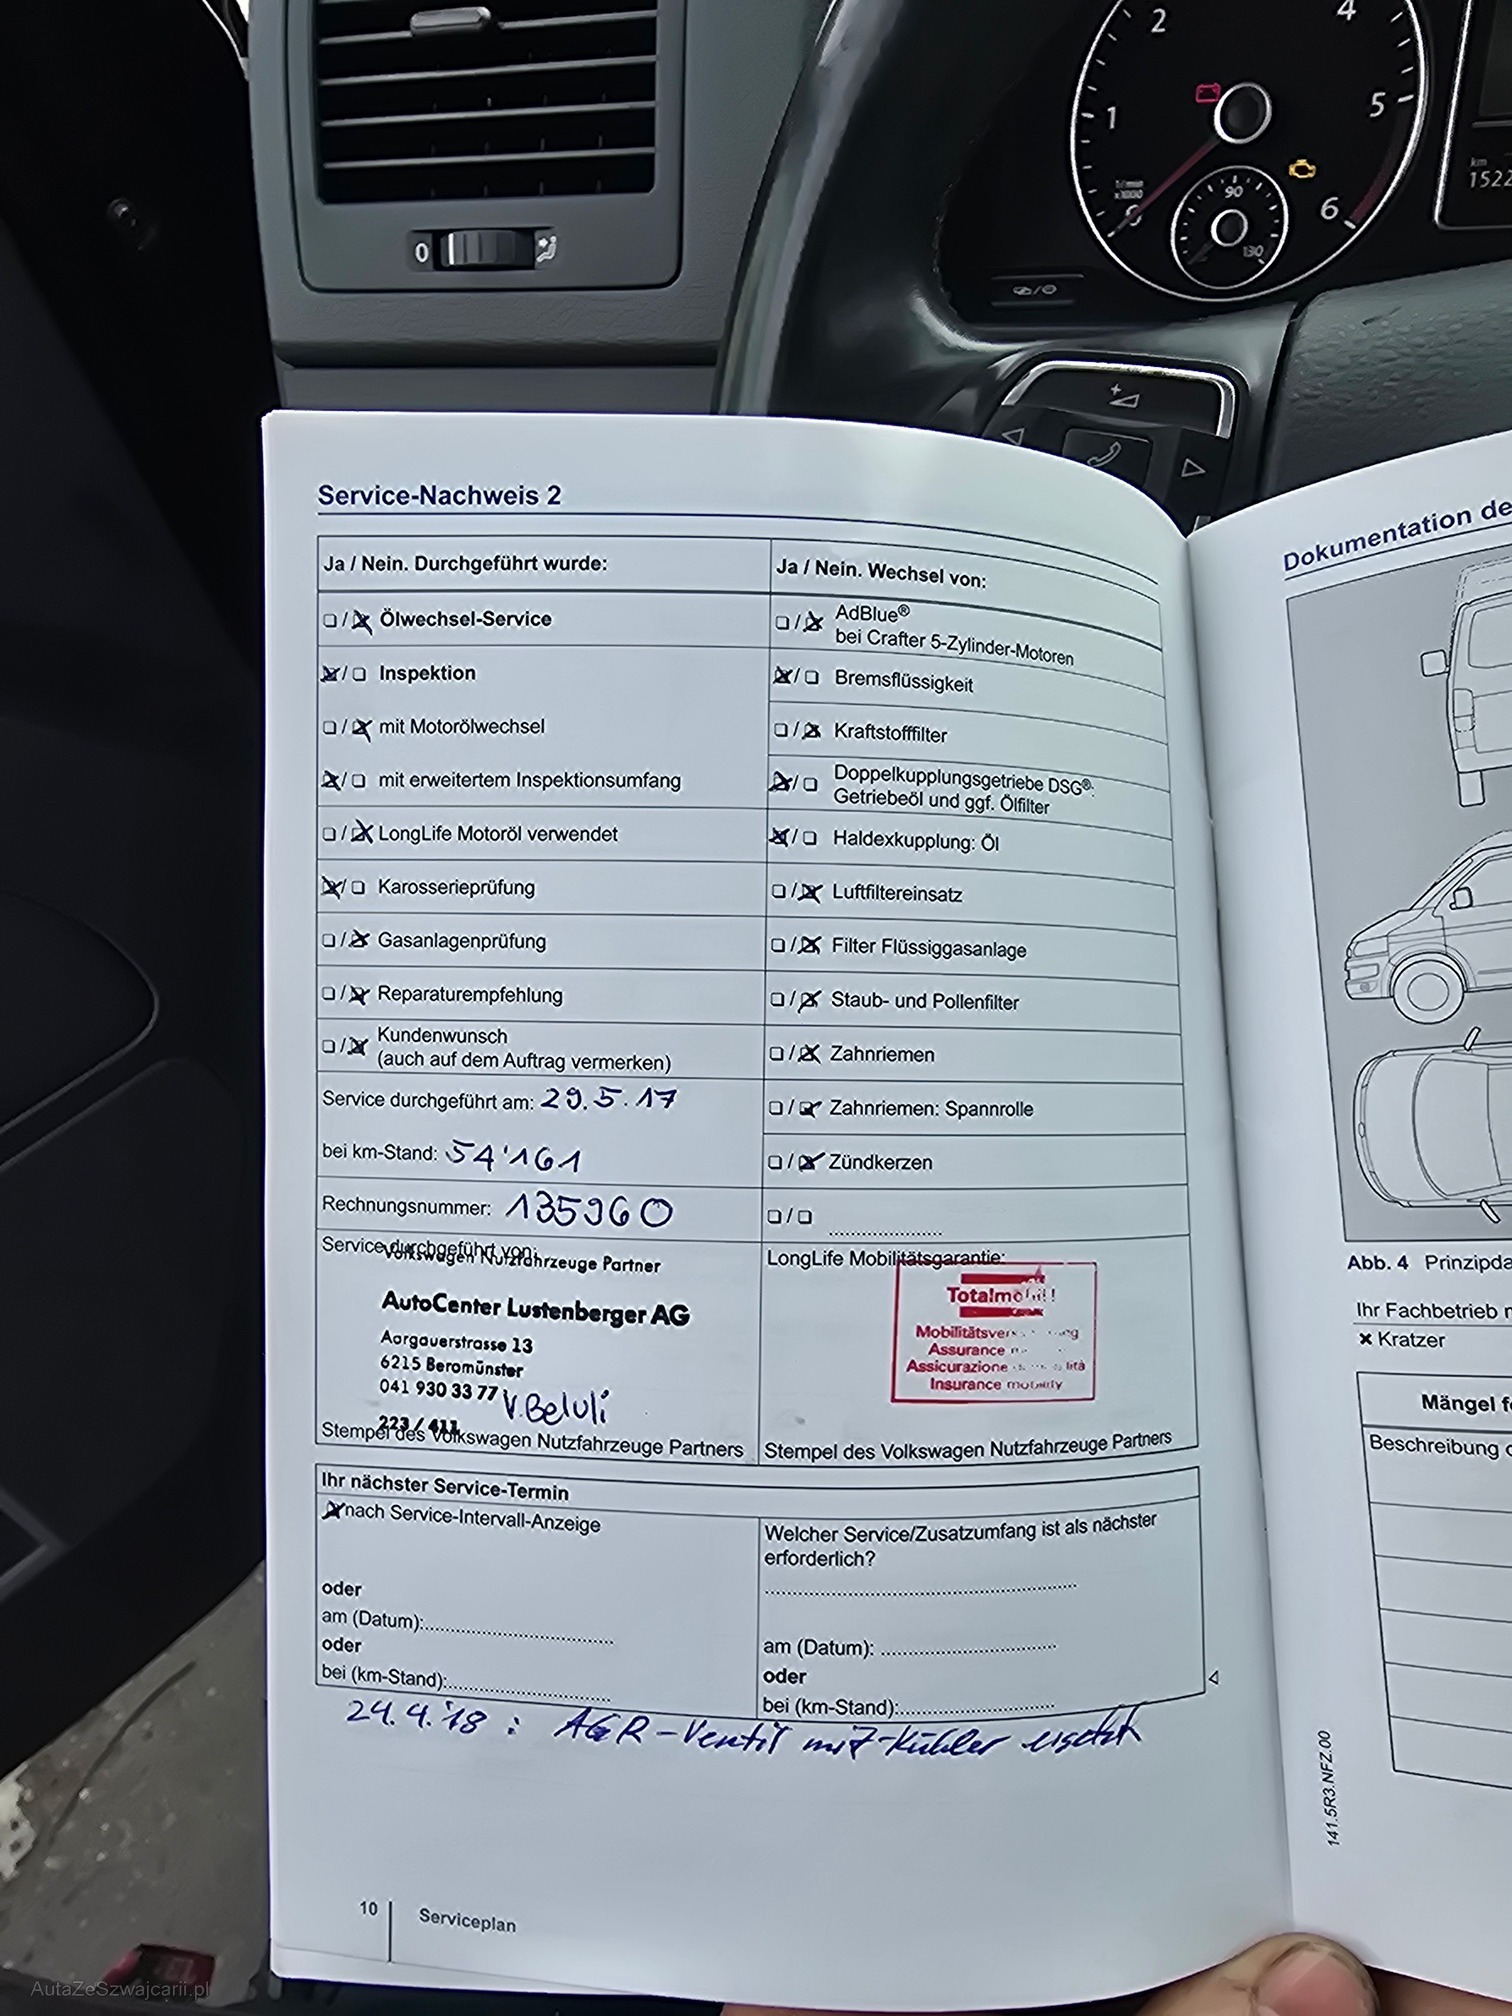 2
4
1
5
6
90
130
km
1522
0
Service-Nachweis 2
Ja / Nein. Durchgeführt wurde:
Ölwechsel-Service
Inspektion
mit Motorölwechsel
mit erweitertem Inspektionsumfang
LongLife Motoröl verwendet
Karosserieprüfung
Gasanlagenprüfung
Reparaturempfehlung
Kundenwunsch
(auch auf dem Auftrag vermerken)
Service durchgeführt am: 29.5.17
bei km-Stand: 54'161
Rechnungsnummer: 135960
Service durchgeführt von:
Volkswagen Nutzfahrzeuge Partner
AutoCenter Lustenberger AG
Aargauerstrasse 13
6215 Beromünster
041 930 33 77 V.Beluli
223 / 411
Stempel des Volkswagen Nutzfahrzeuge Partners
Ja / Nein. Wechsel von:
AdBlue®
bei Crafter 5-Zylinder-Motoren
Bremsflüssigkeit
Kraftstofffilter
Doppelkupplungsgetriebe DSG®:
Getriebeöl und ggf. Ölfilter
Haldexkupplung: Öl
Luftfiltereinsatz
Filter Flüssiggasanlage
Staub- und Pollenfilter
Zahnriemen
Zahnriemen: Spannrolle
Zündkerzen
LongLife Mobilitätsgarantie:
Totalmobil!
Assurance
Assicurazione
Insurance mobility
Stempel des Volkswagen Nutzfahrzeuge Partners
Ihr nächster Service-Termin
nach Service-Intervall-Anzeige
oder
am (Datum):
oder
bei (km-Stand):
Welcher Service/Zusatzumfang ist als nächster
erforderlich?
am (Datum):
oder
bei (km-Stand):
24.4.'18 : AGR-Ventil mit Kühler ersetzt
10 Serviceplan
Dokumentation de
Abb. 4 Prinzipda
Ihr Fachbetrieb
Kratzer
Mängel f
Beschreibung
141.5R3.NFZ.00
AutaZeSzwajcarii.pl